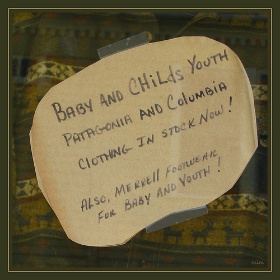 BABY AND CHILDS YOUTH
PATAGONIA AND COLUMBIA
CLOTHING IN STOCK NOW!
ALSO, MERRELL FOOTWEAR
FOR BABY AND YOUTH!